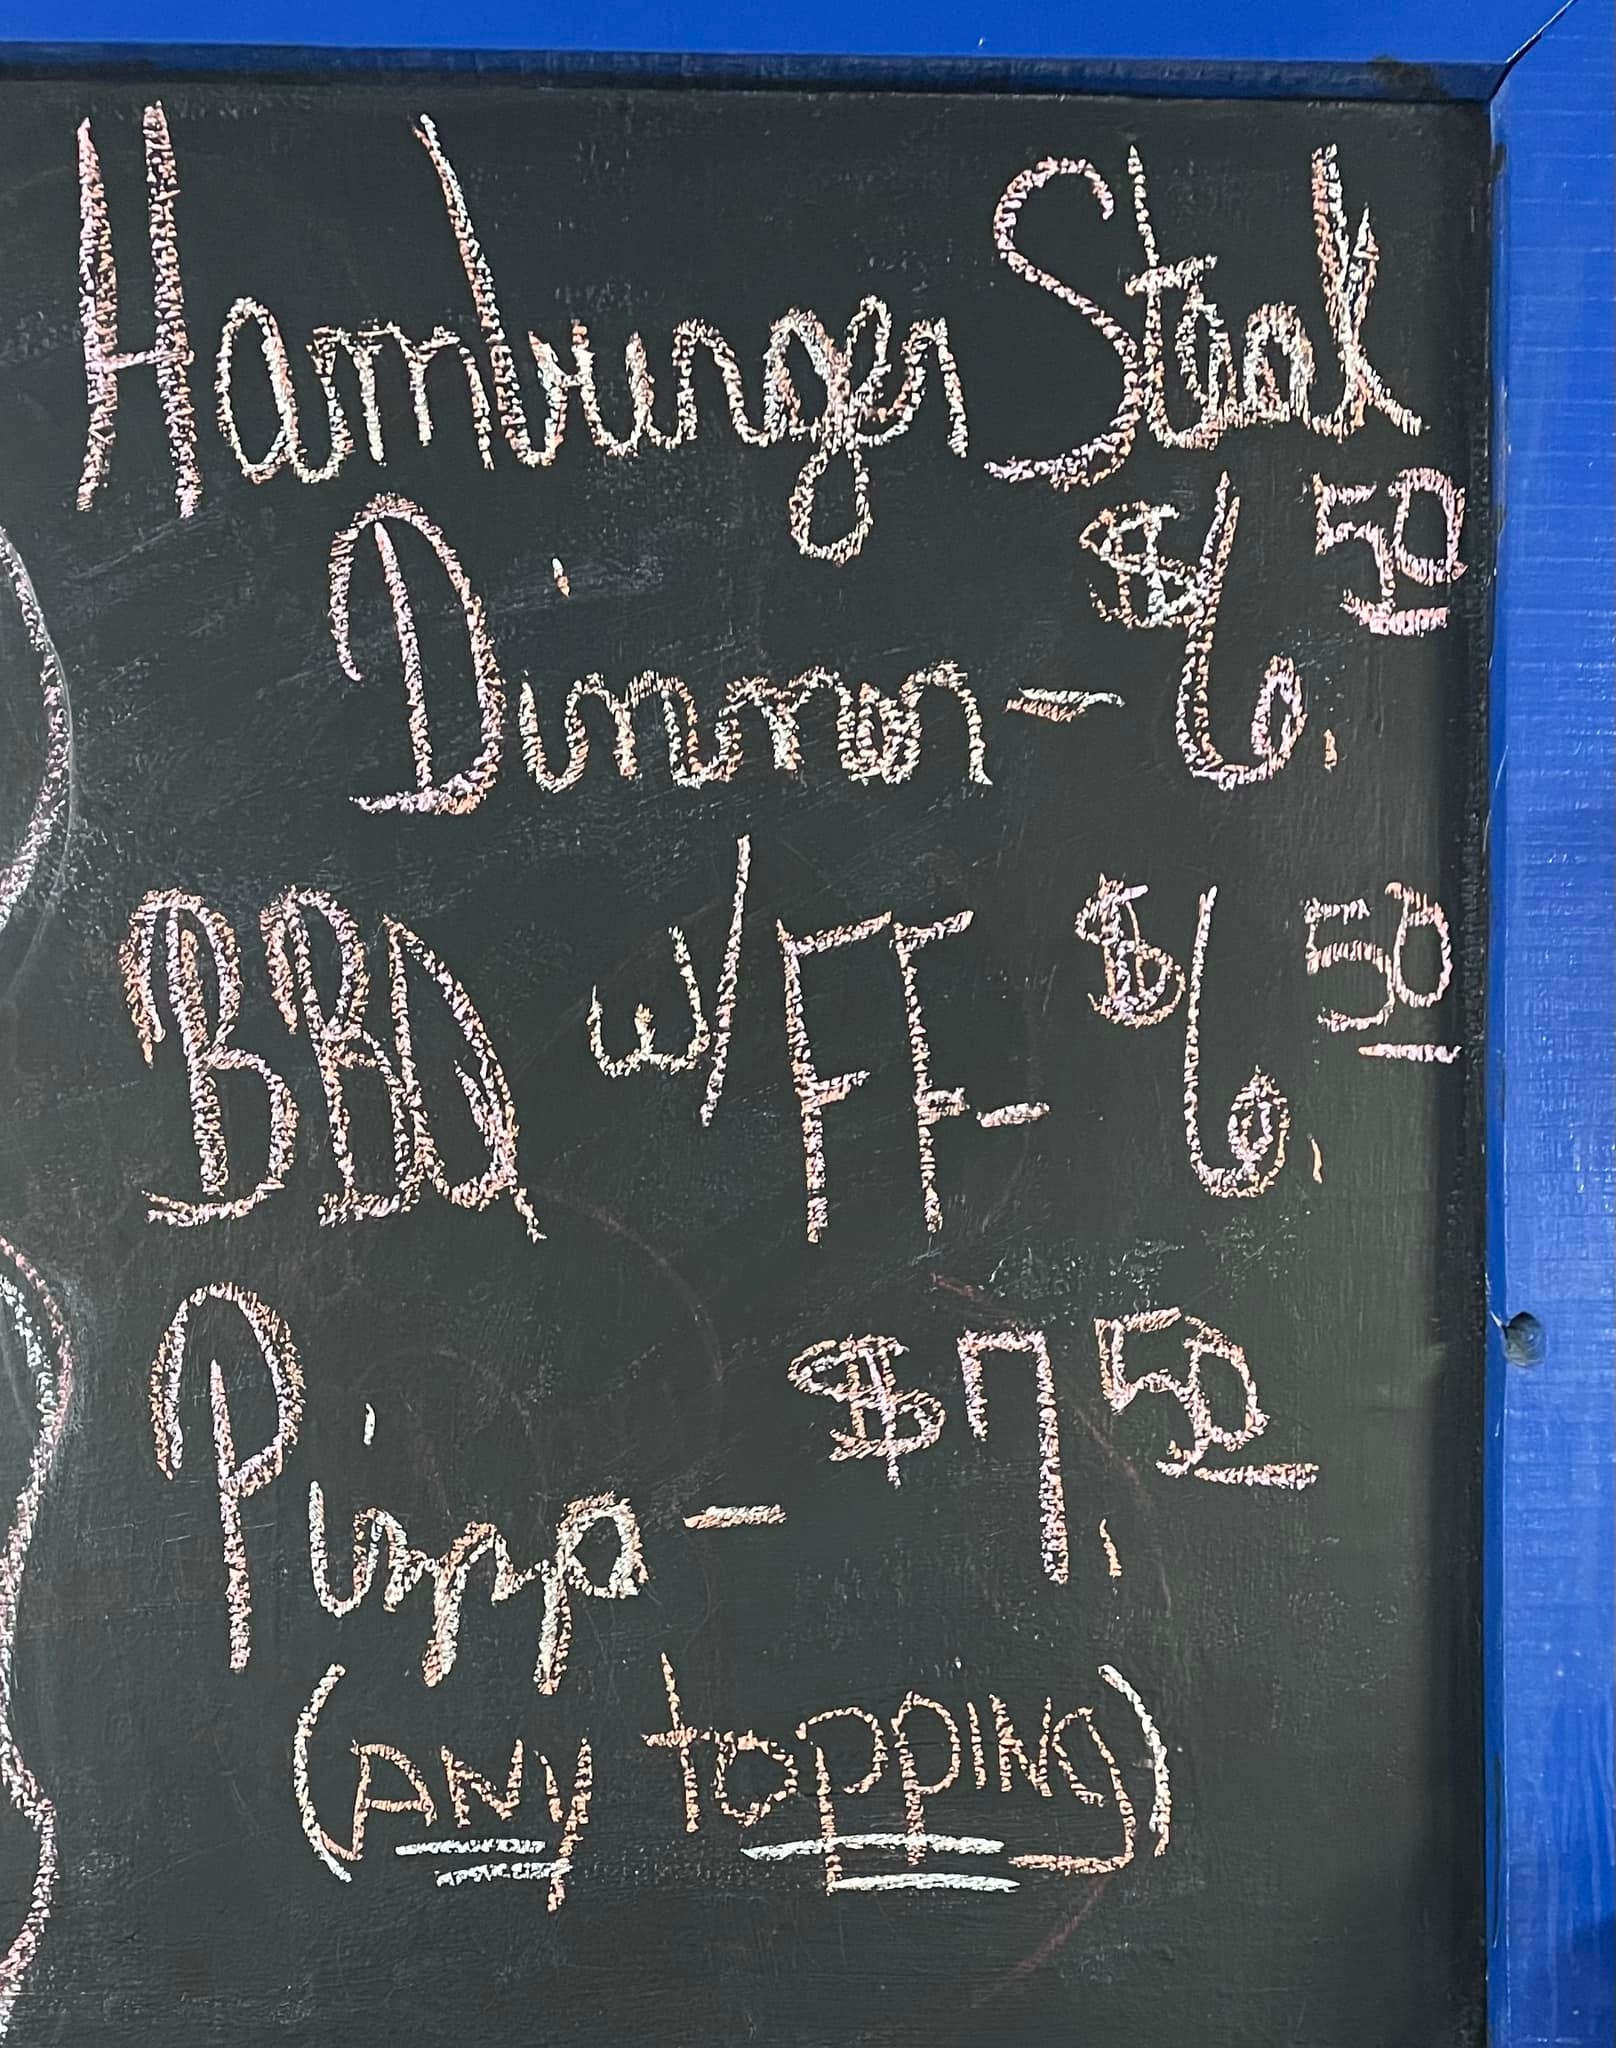 Hamburger Steak
Dinner - $6.50
BBQ w/ FF - $6.50
Pimp - $7.50
(ANY topping)